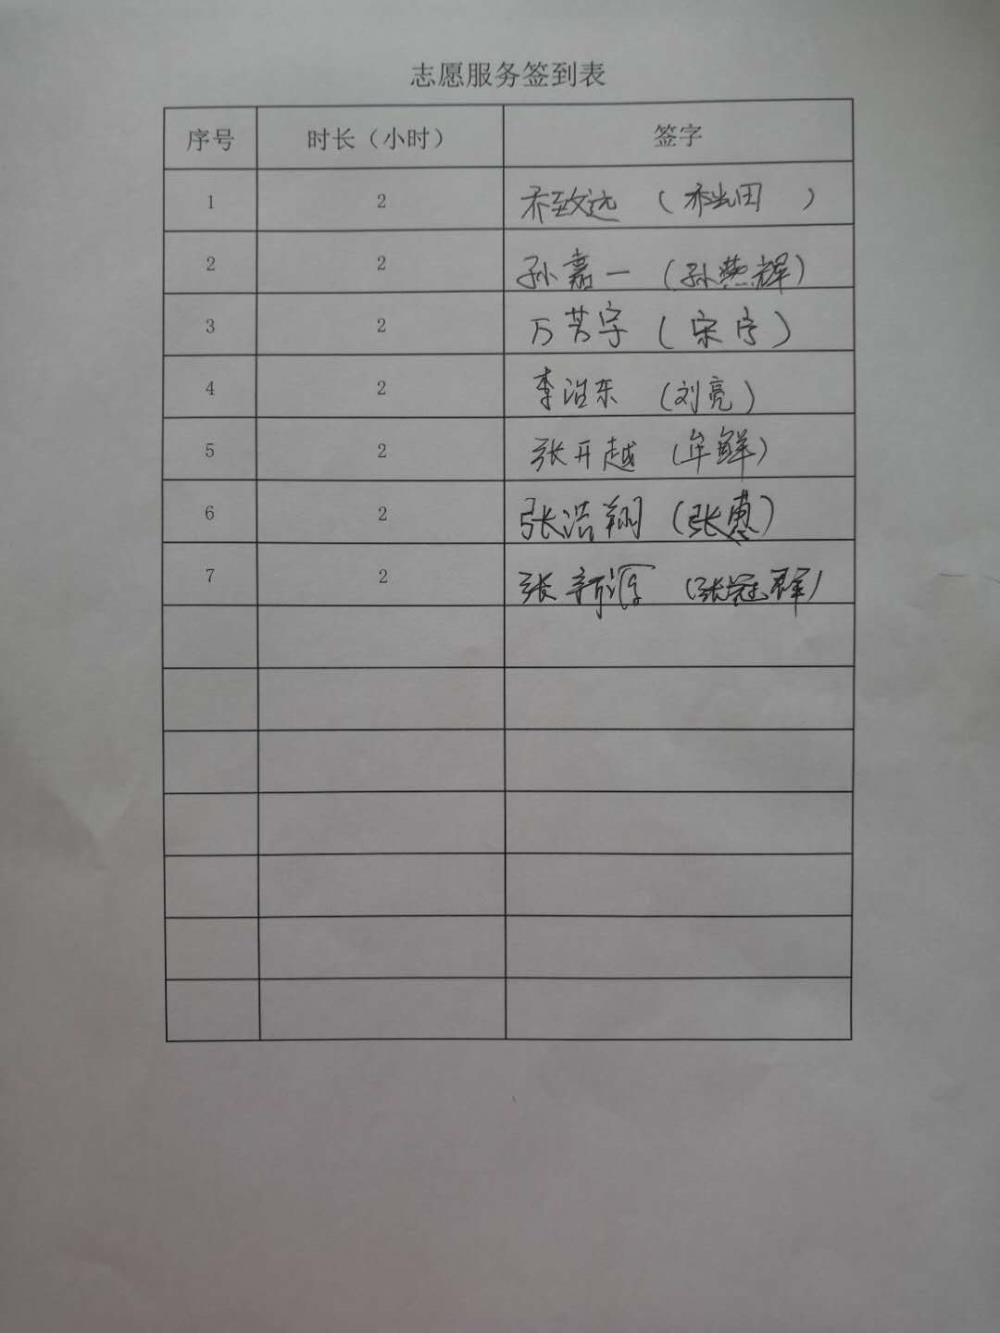 志愿服务签到表
序号 时长（小时） 签字
1 2 乔致远（乔光田）
2 2 孙嘉一（孙燕辉）
3 2 万芳宇（宋宁）
4 2 李浩东（刘亮）
5 2 张开越（牟鲜）
6 2 张浩翔（张惠）
7 2 张新源（张冠群）